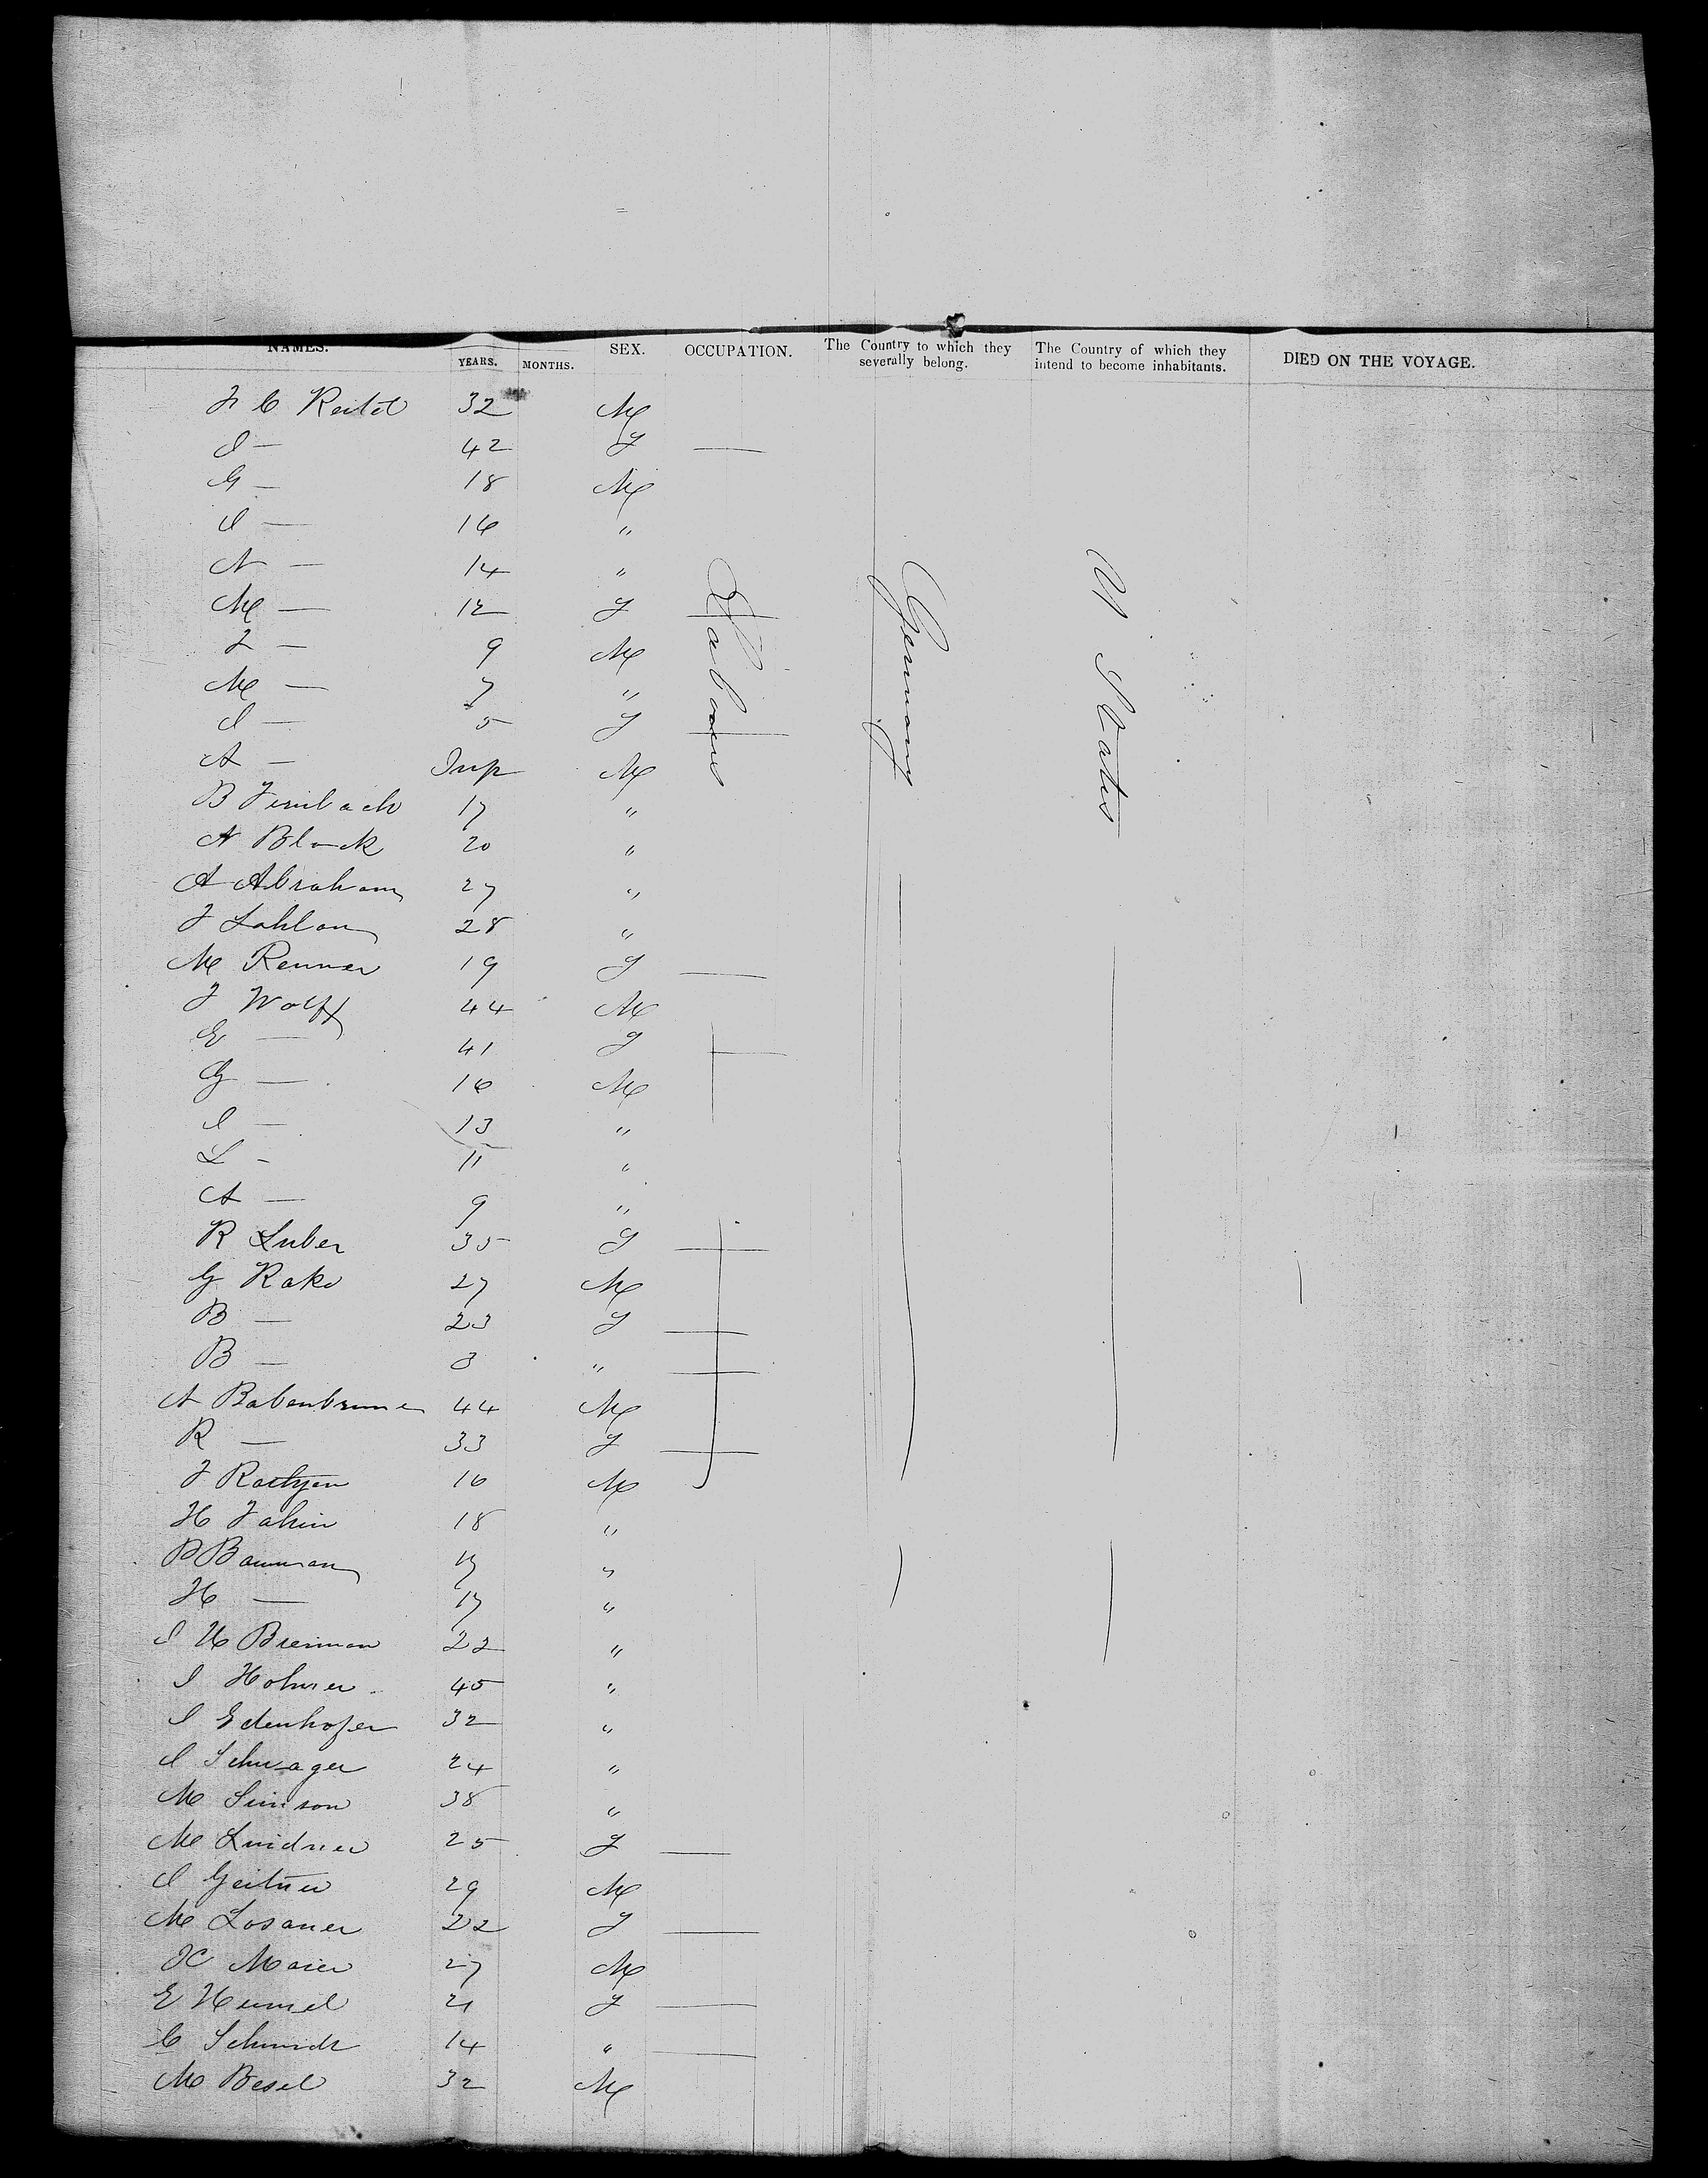 NAMES. YEARS. MONTHS. SEX. OCCUPATION. The Country to which they severally belong. The Country of which they intend to become inhabitants. DIED ON THE VOYAGE.
Laborers
Germany
U States
J C Reitel 32 M
I — 42 F —
G — 18 M
I — 16 "
N — 14 "
M — 12 F
J — 9 M
M — 7 "
I — 5 F
A — Inf M
B Fernbach 17 "
N Block 20 "
A Abraham 27 "
J 28 "
M Renner 19 F —
J Wolff 44 M
E — 41 F —
G — 16 M
I — 13 "
L — 11 "
A — 9 "
R Luber 35 F —
G Rake 27 M
B — 23 F —
B — 3 " —
A 44 M
R — 33 F —
J 16 M
H Jahin 18 "
B Bauman 17 "
H — 17 "
I H 22 "
I 45 "
I Edenhofer 32 "
I Schwager 24 "
M Simson 38 "
M Lindner 25 F —
I Geitner 29 M
M Losaner 22 F —
K Maier 27 M
E Hummel 21 F —
C Schmidt 14 " —
M Besel 32 M